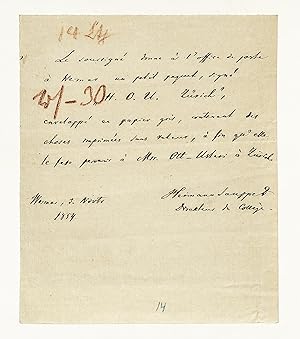 1424
Le soussigné donne à l'office de poste
à Weimar un petit paquet, signé
w/–30 H. O. U. Zürich",
enveloppé en papier gris, contenant des
choses imprimées sans valeur, à fin qu'elle
le fasse parvenir à Mrs. Ott-Usteri à Zürich.
Weimar, 3. Novbr
1854
Hermann Sauppe
Directeur du Collège
14